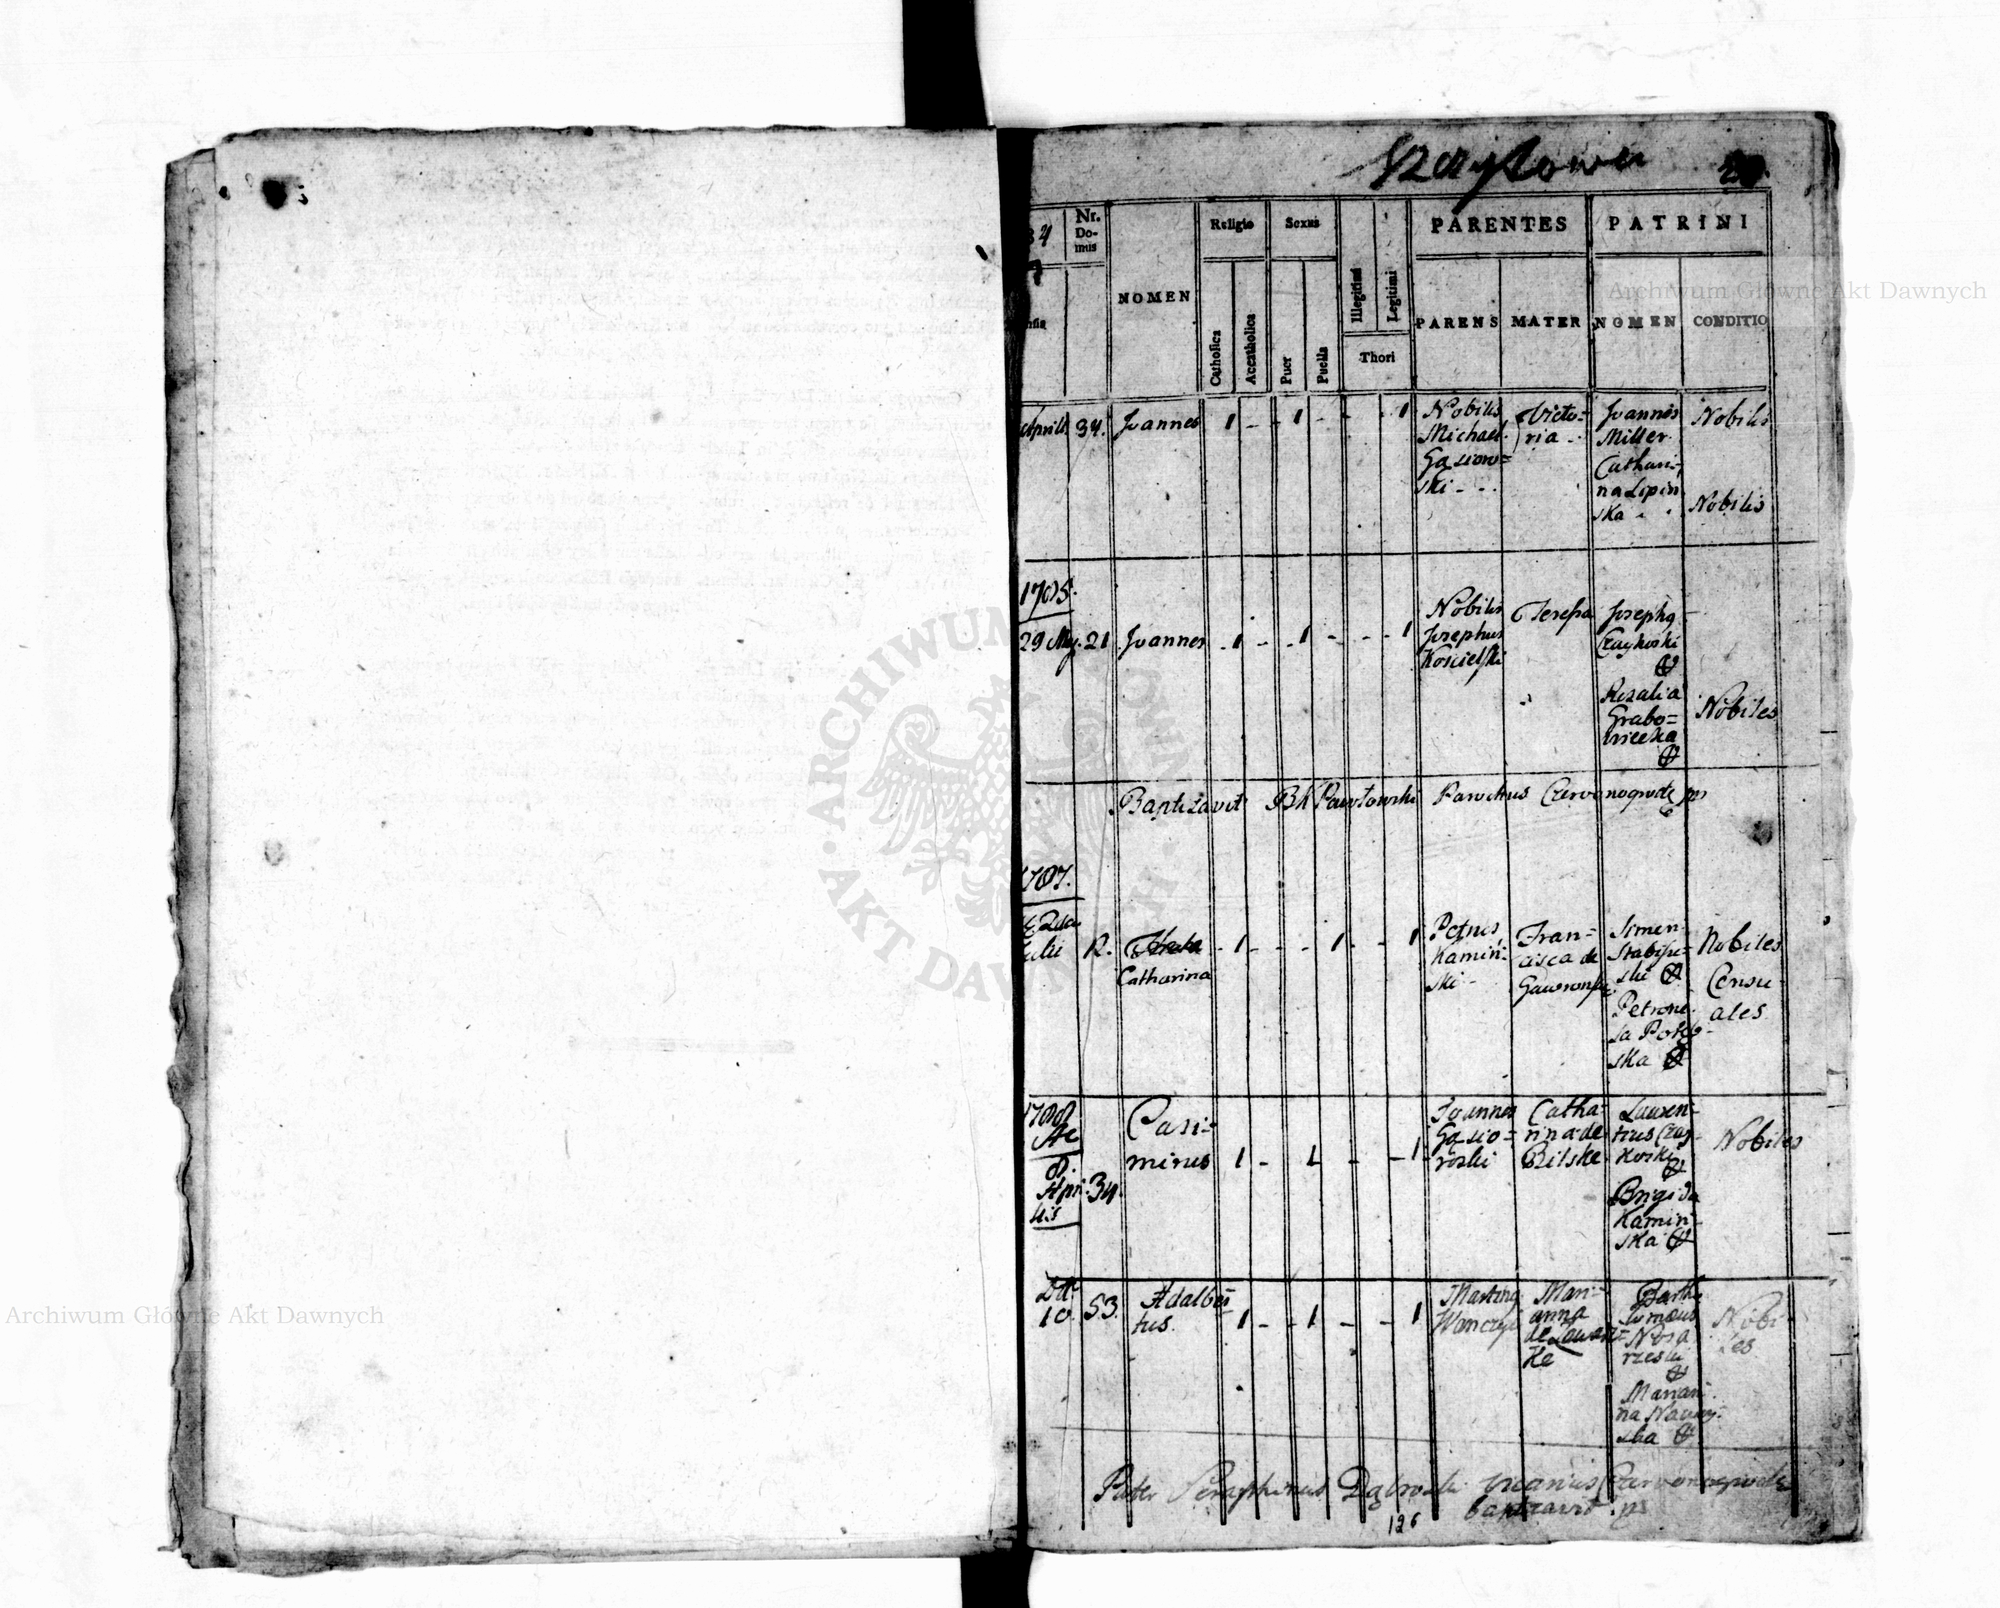 Nr. Domus
NOMEN
Religio
Catholica
Accatholica
Sexus
Puer
Puella
Illegitimi
Legitimi
Thori
PARENTES
PARENS
MATER
PATRINI
NOMEN
CONDITIO
Aprilis 34. Joannes 1 - - 1 - - - 1
Nobilis
Michael
Gasiow=
ski - -
Victo=
ria -
Joannes
Miller
Cathari=
na Lipin
ska
Nobilis
Nobilis
1785.
29 May. 21 Joannes - 1 - - 1 - - - 1
Nobilis
Josephus
Kościelski
Teresia
Josephq
Czaykoski
Rozalia
Grabo=
wiecka
Nobiles
Baptizavit Pawłowski Parochus Czervonogrodensis
1787.
Julii 12. Catharina - 1 - - - 1 - - 1
Petrus
Kamiń=
ski -
Fran=
cisca de
Simen
ski
Petrone
la
ska
Nobiles
Consu=
ales
1788
8.
Apri 34.
lis
Casi=
mirus 1 - 1 - - 1
Joannes
Gasio=
roski
Catha=
rina de
Bilske
Lauren=
tius Czay=
koski
Brigida
Kamin=
ska
Nobiles
10 53. Adalber=
tus. 1 - - 1 - - 1
Marting
Wanczyc
Mari=
anna
de
ke
Bartho
lomaeus
rzeski
Marian
na
ska
Nobi=
les
Pater Seraphinus Dąbroski vicarius Czervonogrodensis
baptizavit
126
Archiwum Główne Akt Dawnych
Archiwum Główne Akt Dawnych
ARCHIWUM GŁÓWNE AKT DAWNYCH